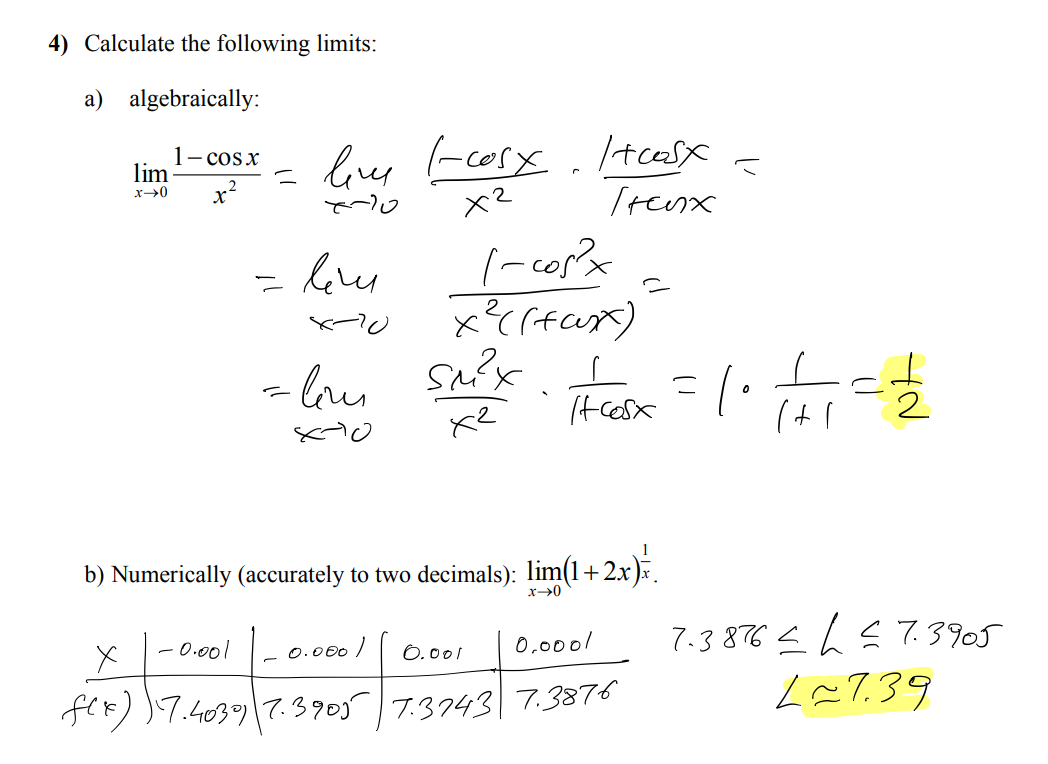 4) Calculate the following limits:
a) algebraically:
lim x→0 (1 − cos x)/x² = lim x→0 (1 − cos x)/x² · (1 + cos x)/(1 + cos x) =
= lim x→0 (1 − cos² x)/(x²(1 + cos x)) =
= lim x→0 sin² x/x² · 1/(1 + cos x) = 1 · 1/(1 + 1) = 1/2
b) Numerically (accurately to two decimals): lim x→0 (1 + 2x)^(1/x).
x | -0.001 | -0.0001 | 0.001 | 0.0001
f(x) | 7.4039 | 7.3905 | 7.3743 | 7.3876
7.3876 ≤ L ≤ 7.3905
L ≃ 7.39